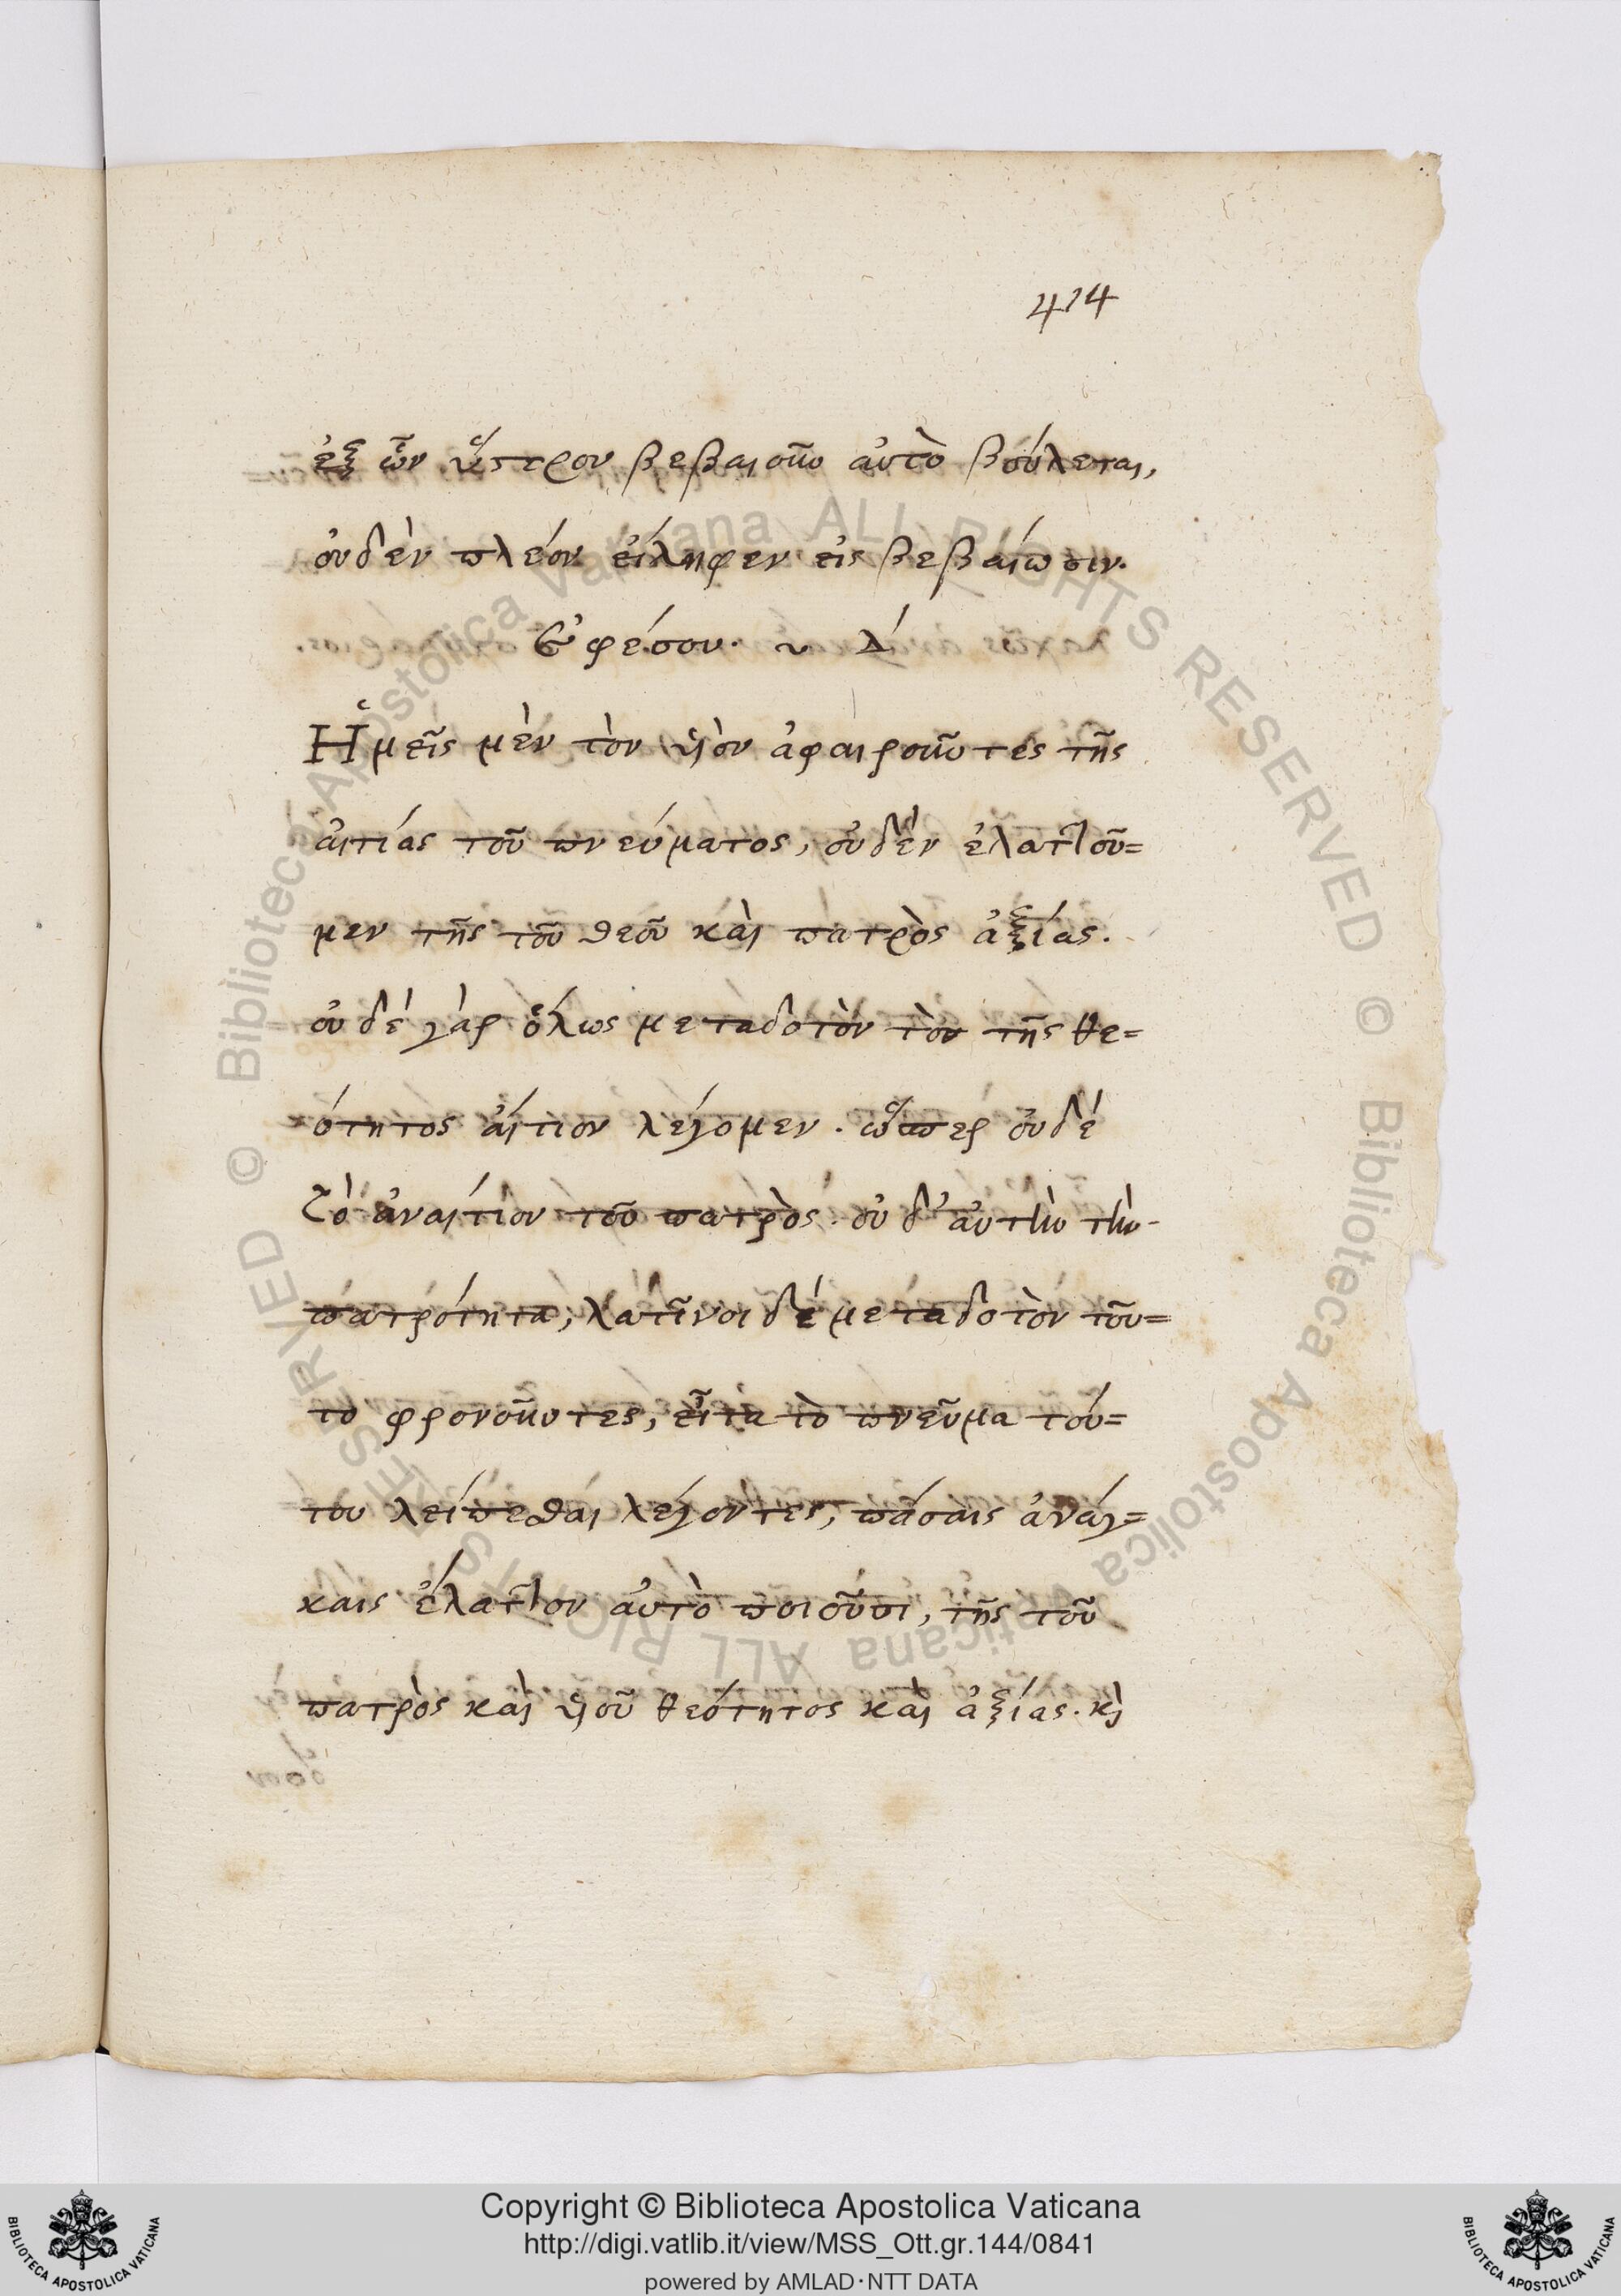 414
ἐξ ὧν ὕστρου βεβαιοῦν αὐτὸ βούλεται,
οὐδὲν πλέον εἴληφεν εἰς βεβαίωσιν.
Ἐφέσου. ~ Δ΄
Ἡμεῖς μὲν τὸν υἱὸν ἀφαιροῦντες τῆς
αἰτίας τοῦ πνεύματος, οὐδὲν ἐλαττοῦ=
μεν τῆς τοῦ θεοῦ καὶ πατρὸς ἀξίας.
οὐδὲ γὰρ ὅλως μεταδοτὸν τὸν τῆς θε=
ότητος αἴτιον λέγομεν. ὥσπερ οὐδὲ
τὸ ἀναίτιον τοῦ πατρὸς. οὐδ' αὐτὴν τὴν-
πατρότητα, λατῖνοι δὲ μεταδοτὸν τοῦ=
το φρονοῦντες, εἶτα τὸ πνεῦμα τού=
του λείπεσθαι λέγοντες, πάσαις ἀνάγ=
καις ἔλαττον αὐτὸ ποιοῦσι, τῆς τοῦ
πατρὸς καὶ υἱοῦ θεότητος καὶ ἀξίας. κὶ
Copyright © Biblioteca Apostolica Vaticana
http://digi.vatlib.it/view/MSS_Ott.gr.144/0841
powered by AMLAD·NTT DATA
BIBLIOTECA APOSTOLICA VATICANA
BIBLIOTECA APOSTOLICA VATICANA
© Biblioteca Apostolica Vaticana ALL RIGHTS RESERVED © Biblioteca Apostolica Vaticana ALL RIGHTS RESERVED